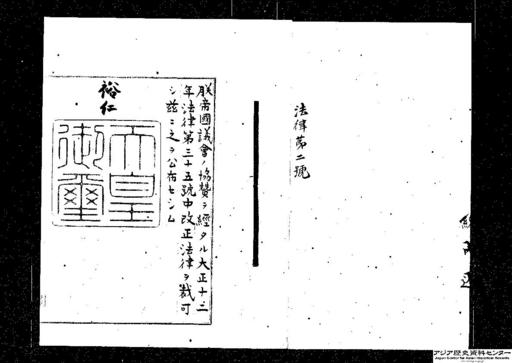 法律第二號
朕帝國議會ノ協賛ヲ經タル大正十二
年法律第三十五號中改正法律ヲ裁可
シ茲ニ之ヲ公布セシム
裕仁
天皇
御璽
アジア歴史資料センター
Japan Center for Asian Historical Records